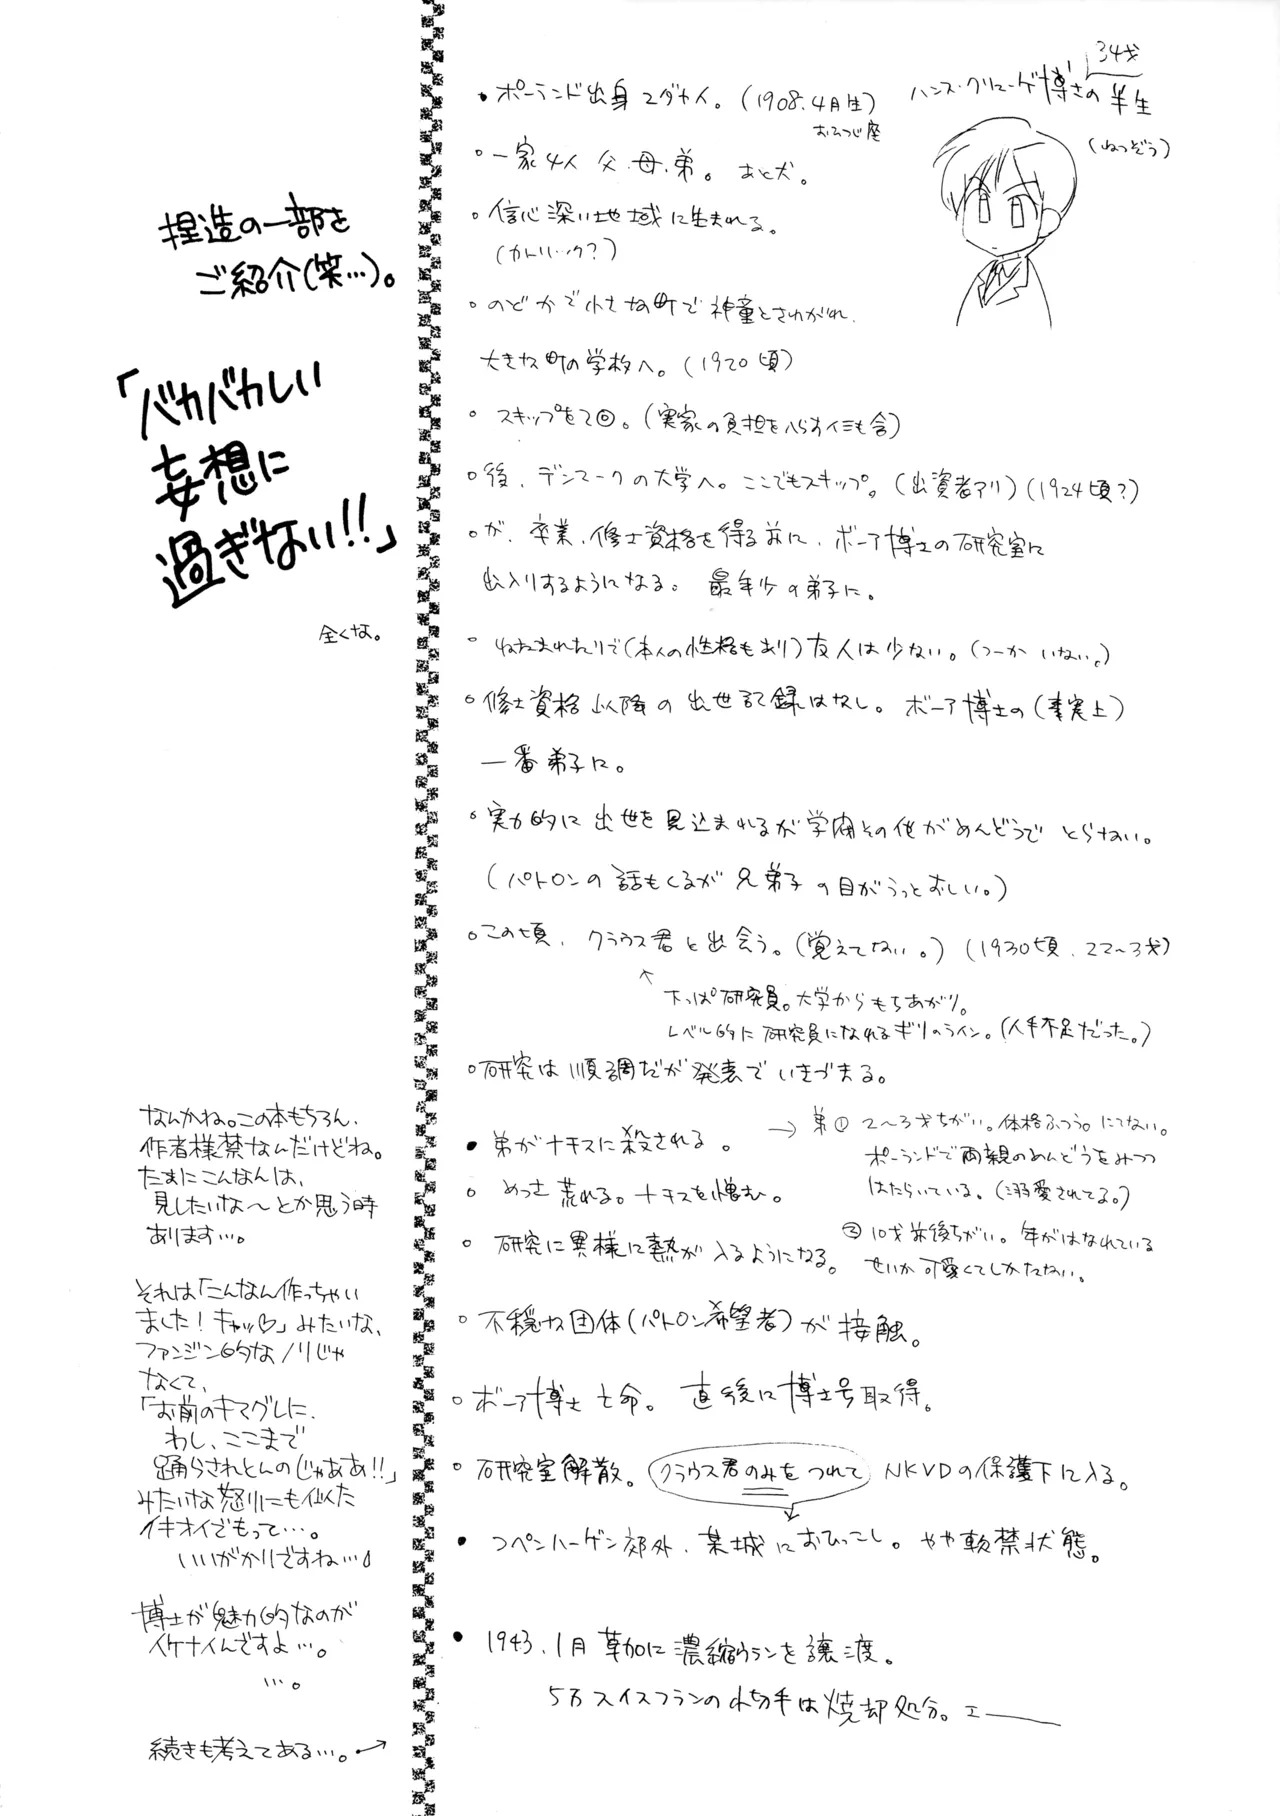 34才
ハンス・クリューゲ博士の半生
(ねつぞう)
・ポーランド出身ユダヤ人。(1908.4月生)
おひつじ座
・一家4人 父.母.弟。 あと犬。
・信心深い地域に生まれる。
(カトリック?)
・のどかで小さな町で神童とさわがれ.
大きな町の学校へ。(1920頃)
・スキップを2回。(実家の負担をへらすイミも含)
・後、デンマークの大学へ。ここでもスキップ。(出資者アリ)(1924頃?)
・が、卒業、修士資格を得る前に、ボーア博士の研究室に
出入りするようになる。 最年少の弟子に。
・ねたまれたりで(本人の性格もあり)友人は少ない。(つーか いない。)
・修士資格以降の出世記録はなし。ボーア博士の(事実上)
一番弟子に。
・実力的に出世を見込まれるが学閥その他がめんどうでとらない。
(パトロンの話もくるが兄弟子の目がうっとおしい。)
・この頃、クラウス君と出会う。(覚えてない。)(1930頃.22〜3才)
↑
下っぱ研究員。大学からもちあがり。
レベル的に研究員になれるギリのライン。(人手不足だった。)
・研究は順調だが発表でいきづまる。
・弟がナチスに殺される。
→ 弟① 2〜3才ちがい。体格ふつう。にてない。
ポーランドで両親のめんどうをみつつ
はたらいている。(溺愛されてる。)
② 10才前後ちがい。年がはなれている
せいか可愛くてしかたない。
・めっさ荒れる。ナチスを憎む。
・研究に異様に熱が入るようになる。
・不穏な団体(パトロン希望者)が接触。
・ボーア博士亡命。 直後に博士号取得。
・研究室解散。クラウス君のみをつれてNKVDの保護下に入る。
・コペンハーゲン郊外、某城におひっこし。やや軟禁状態。
・1943.1月 草加に濃縮ウランを譲渡。
5万スイスフランの小切手は焼却処分。エ――
捏造の一部を
ご紹介(笑…)。
「バカバカしい
妄想に
過ぎない!!」
全くな。
なんかね。この本もちろん、
作者様禁なんだけどね。
たまにこんなんは、
見したいな〜とか思う時
あります…。
それは「こんなん作っちゃい
ました!キャッ♡」みたいな、
ファンジン的なノリじゃ
なくて、
「お前のキマグレに、
わし、ここまで
踊らされとんのじゃああ!!」
みたいな怒りにも似た
イキオイでもって…。
いいがかりですね…
博士が魅力的なのが
イケナイんですよ…。
…。
続きも考えてある…。→